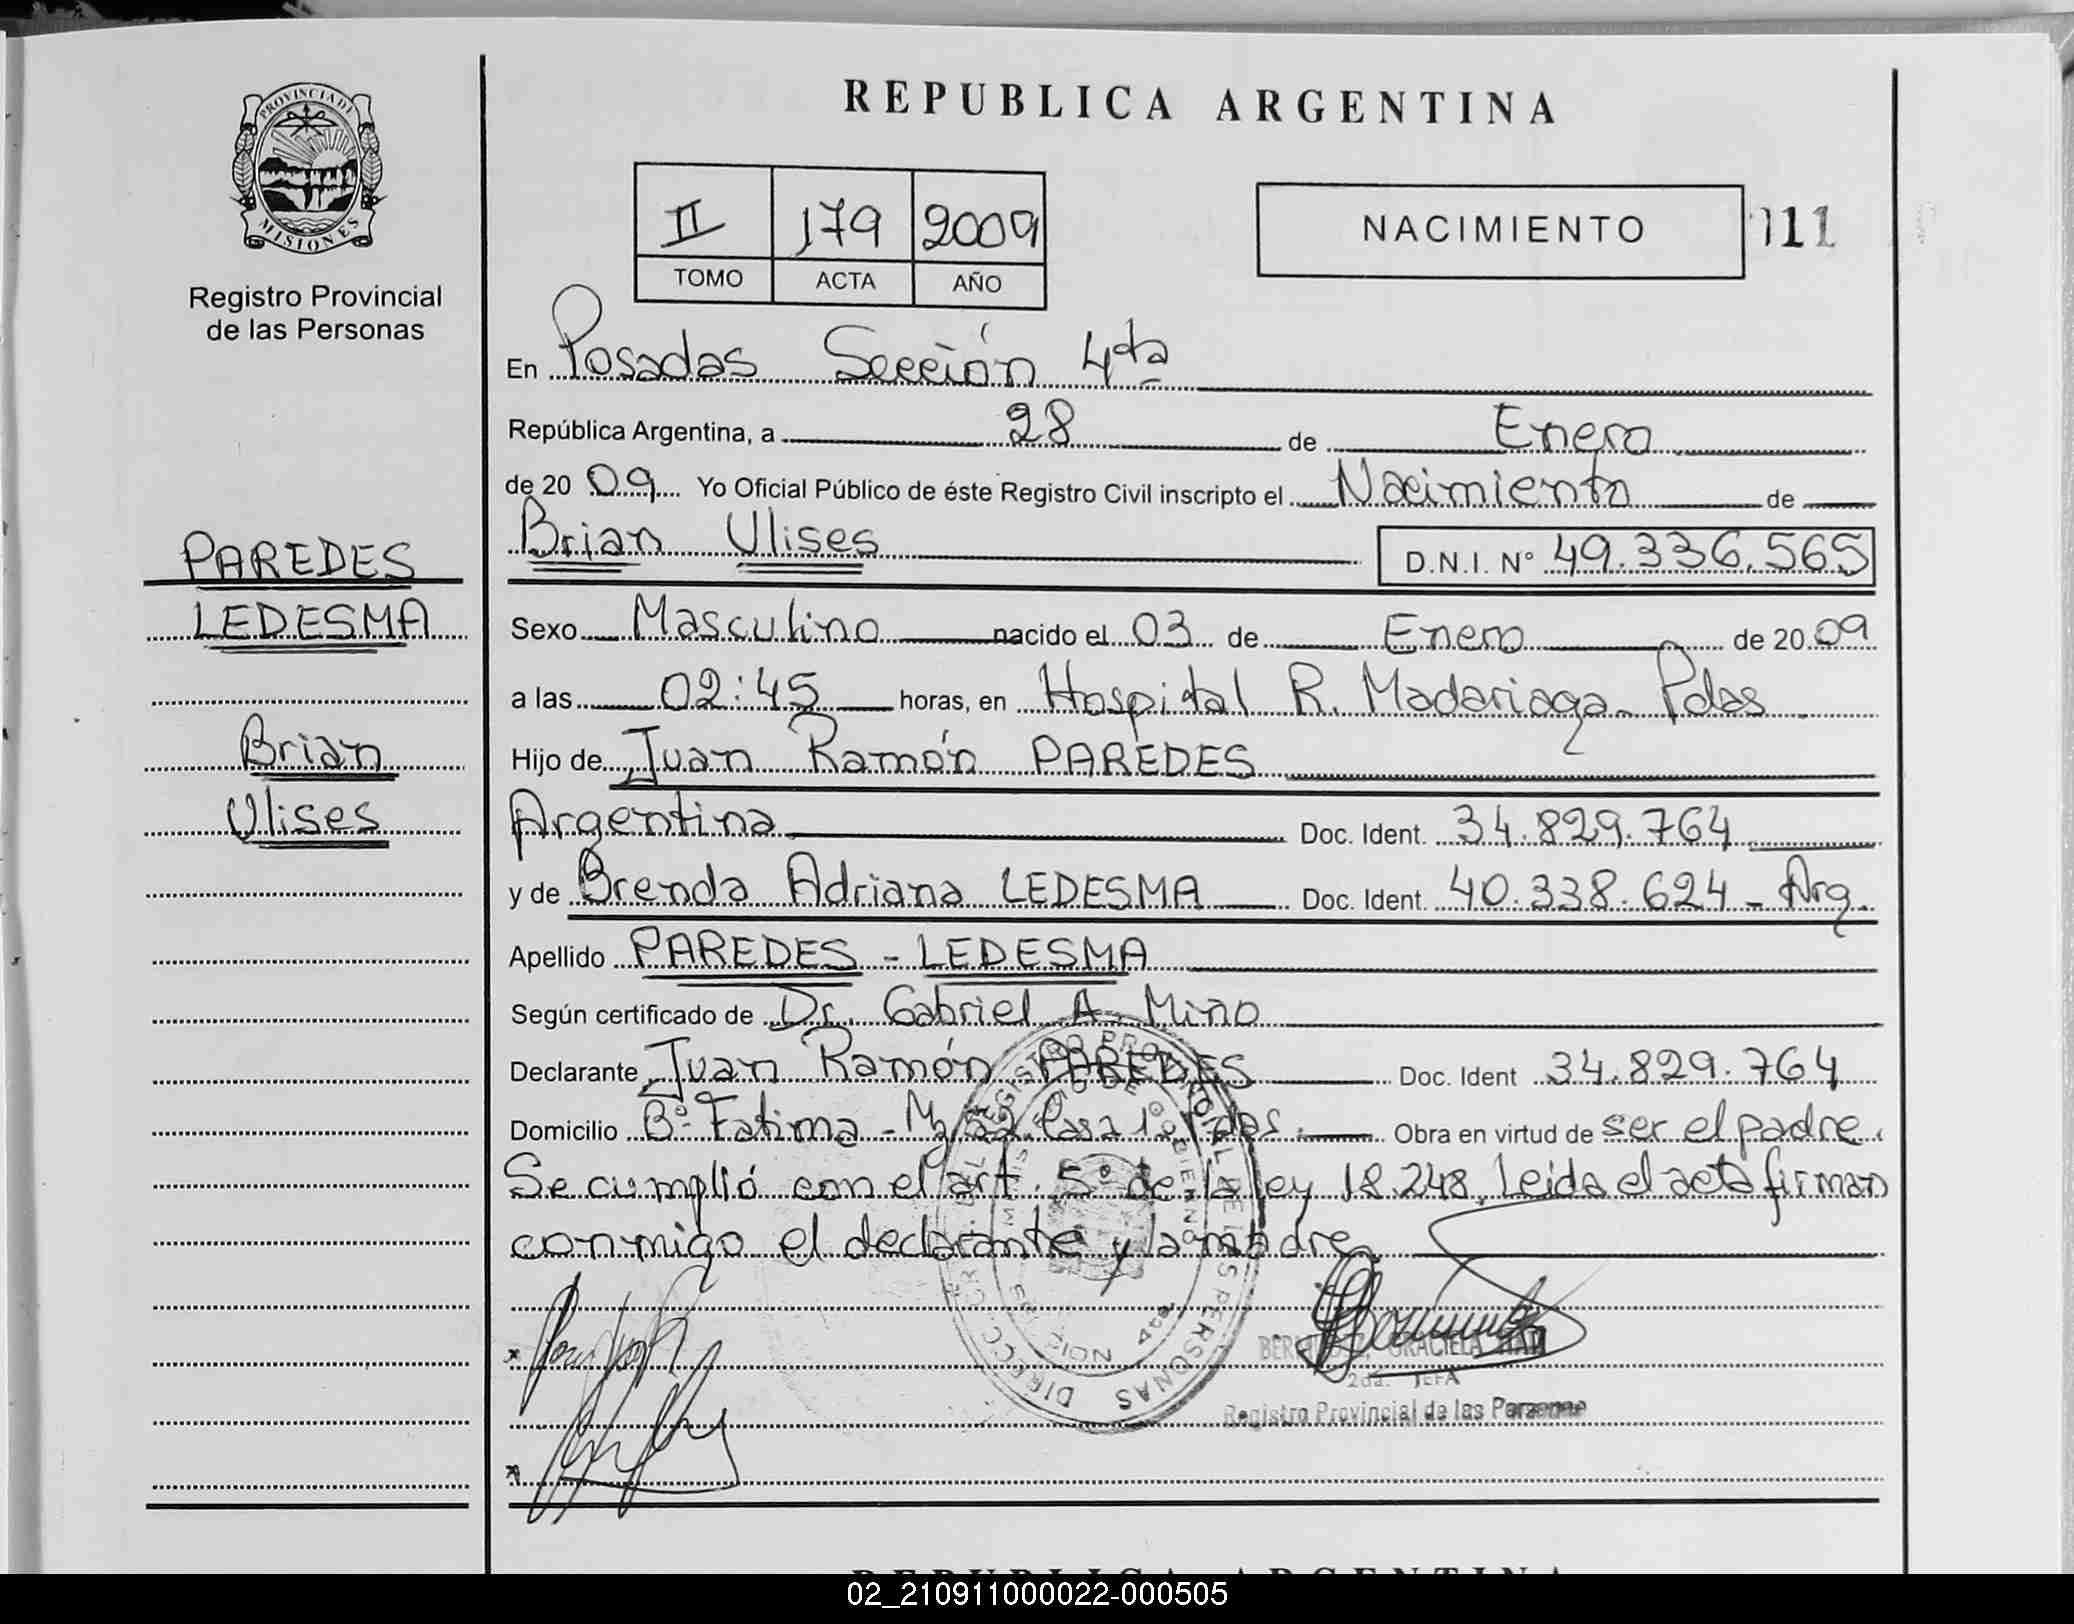 REPUBLICA ARGENTINA
PROVINCIA DE
MISIONES
Registro Provincial
de las Personas
II 179 2009
TOMO ACTA AÑO
NACIMIENTO 111
En Posadas Sección 4ta
República Argentina, a 28 de Enero
de 20 09 Yo Oficial Público de éste Registro Civil inscripto el Nacimiento de
Brian Ulises D.N.I. Nº 49.336.565
PAREDES
LEDESMA
Brian
Ulises
Sexo Masculino nacido el 03 de Enero de 20 09
a las 02:45 horas, en Hospital R. Madariaga - Pdas
Hijo de Juan Ramón PAREDES
Argentina Doc. Ident. 34.829.764
y de Brenda Adriana LEDESMA Doc. Ident. 40.338.624 - Arg.
Apellido PAREDES - LEDESMA
Según certificado de Dr. Gabriel A. Mino
Declarante Juan Ramón PAREDES Doc. Ident 34.829.764
Domicilio Bº Fatima - Mz Casa Pdas. Obra en virtud de ser el padre.
Se cumplió con el art. 5º de la ley 18.248, Leida el acta firman
conmigo el declarante y la madre
GRACIELA
2da. JEFA
Registro Provincial de las Personas
02_210911000022-000505